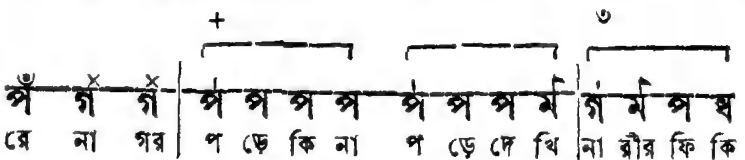 + ৩
প গ গ | প প প প প প প র্ম | গ র্ম প ধ
রে না গর প ড়ে কি না প ড়ে দে খি না রীর ফি কি